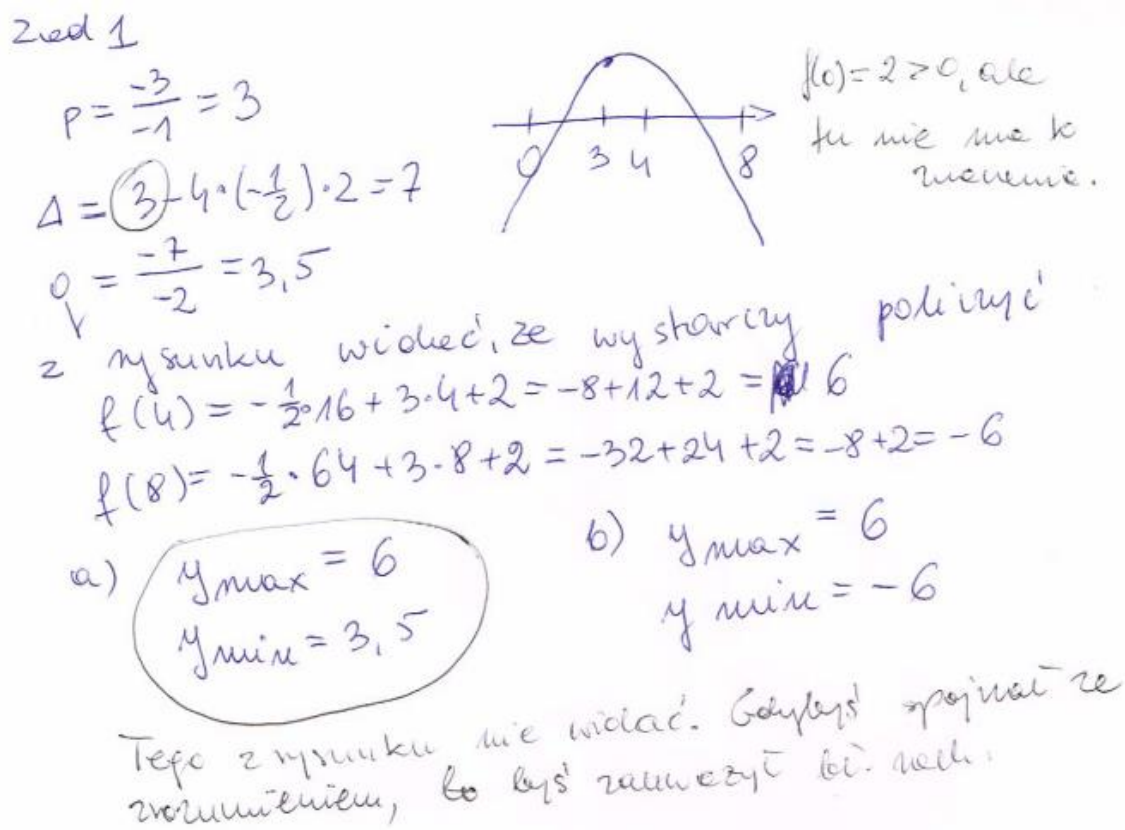 Zad 1
p = \frac{-3}{-1} = 3
Δ = 3 - 4·(-\frac{1}{2})·2 = 7
q = \frac{-7}{-2} = 3,5
0 3 4 8
f(0) = 2 > 0, ale
tu nie ma to
znaczenia.
z rysunku widać, że wystarczy policzyć
f(4) = -\frac{1}{2}·16 + 3·4 + 2 = -8 + 12 + 2 = 6
f(8) = -\frac{1}{2}·64 + 3·8 + 2 = -32 + 24 + 2 = -8 + 2 = -6
a) y max = 6
y min = 3,5
b) y max = 6
y min = -6
Tego z rysunku nie widać. Gdybyś spojrzał ze
zrozumieniem, to byś zauważył bł. rach.